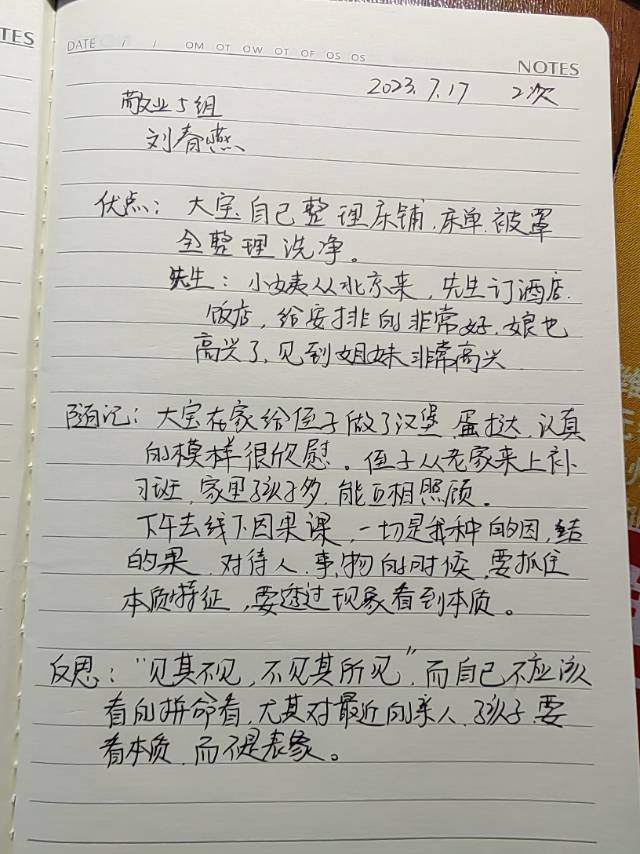 TES
DATE / / OM OT OW OT OF OS OS
NOTES
2023.7.17 2次
敬业5组
刘春燕
优点：大宝自己整理床铺.床单.被罩
全整理洗净。
先生：小姨从北京来，先生订酒店.
饭店，给安排的非常好，娘也
高兴了，见到姐妹非常高兴.
随记：大宝在家给侄子做了汉堡.蛋挞，认真
的模样很欣慰。侄子从老家来上补
习班，家里孩子多，能互相照顾。
下午去线下因果课，一切是我种的因，结
的果，对待人.事.物的时候，要抓住
本质特征，要透过现象看到本质。
反思："见其不见，不见其所见"，而自己不应该
看的拼命看，尤其对最近的亲人.孩子，要
看本质，而不是表象。